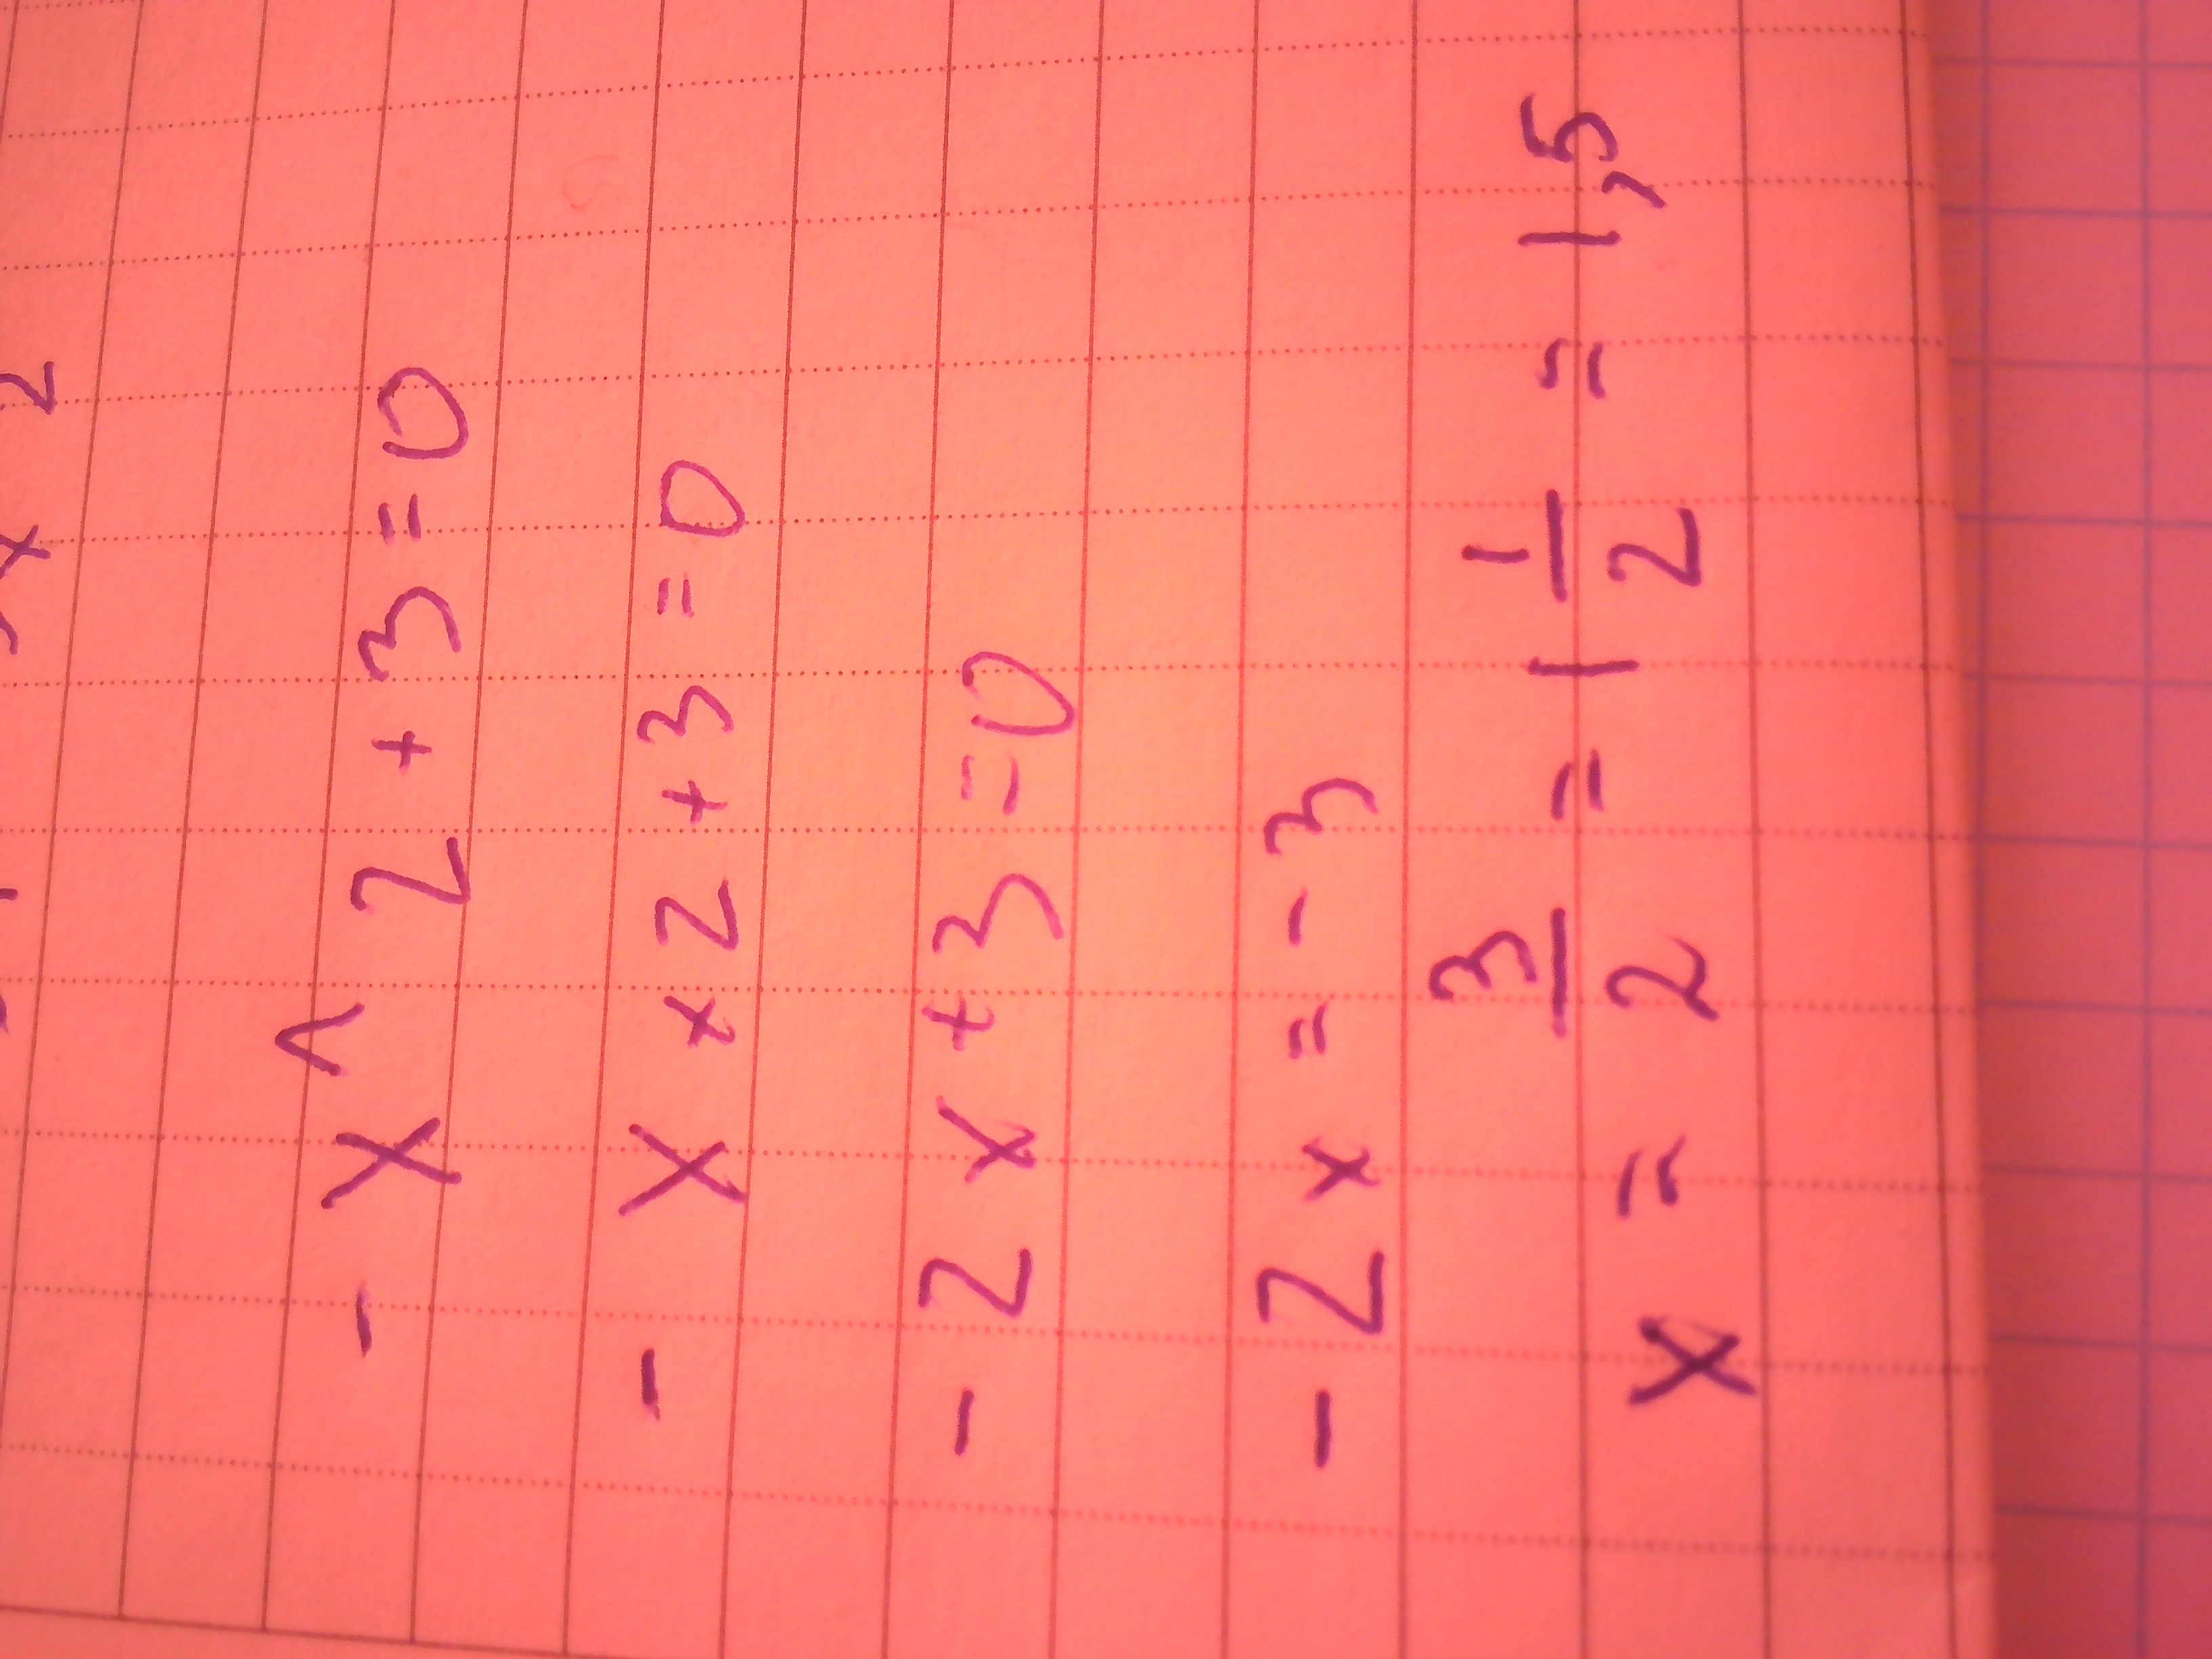 - X ^ 2 + 3 = 0
- X x 2 + 3 = 0
- 2 x + 3 = 0
- 2 x = - 3
x = 3/2 = 1 1/2 = 1,5